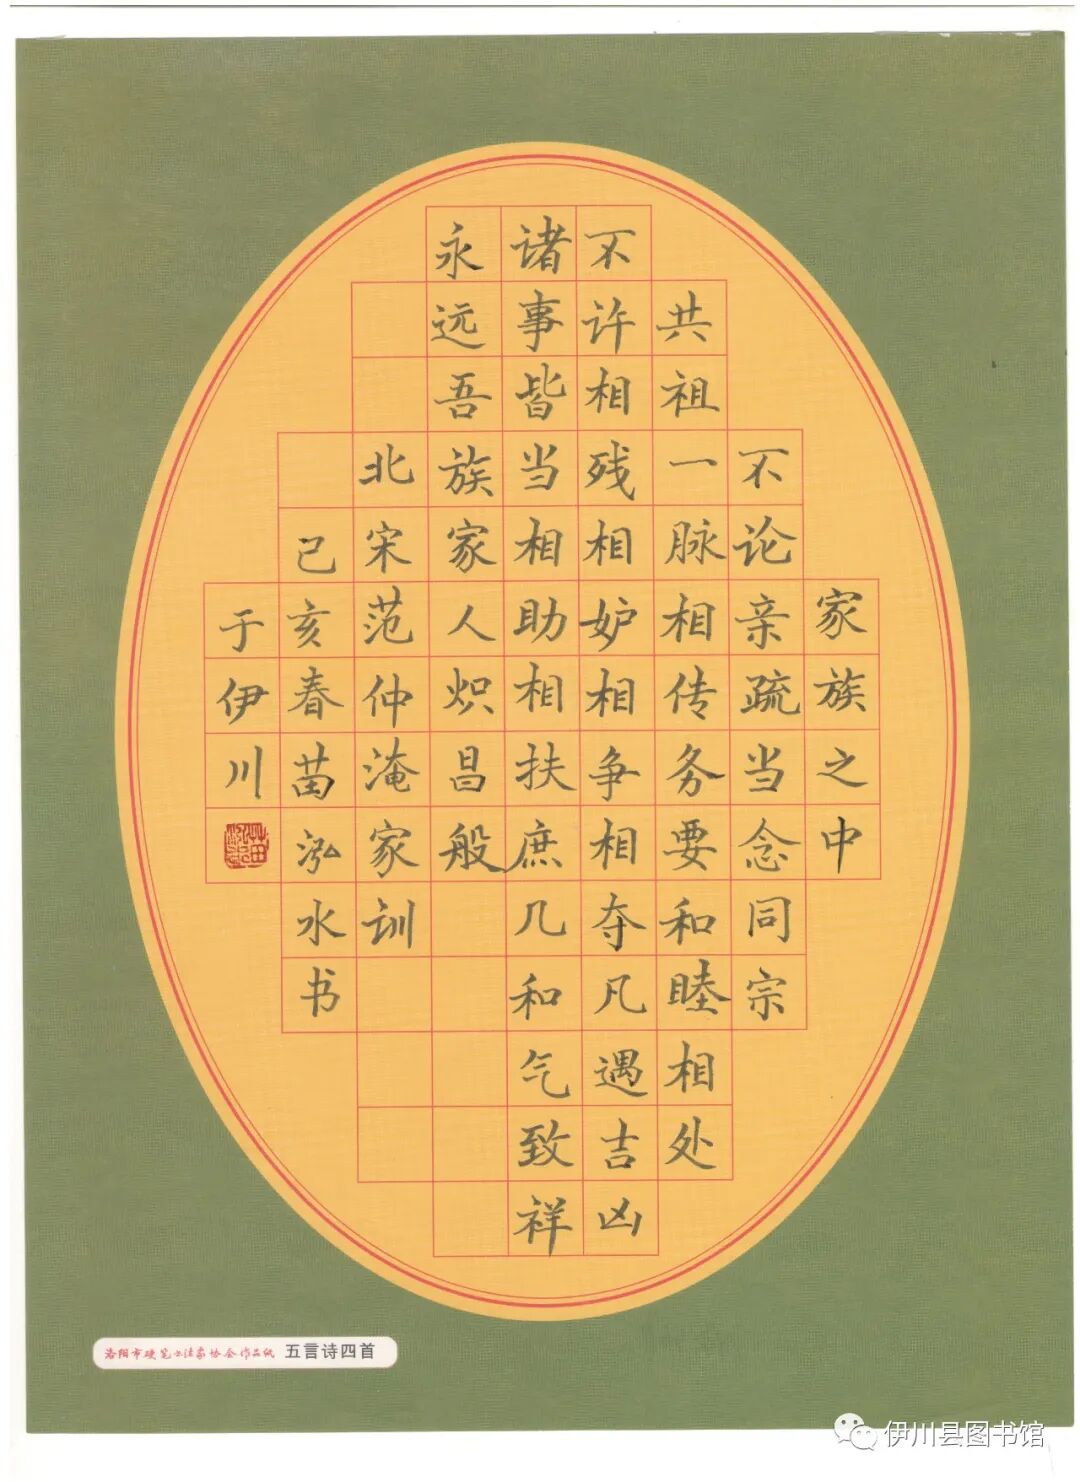 家族之中
不论亲疏当念同宗
共祖一脉相传务要和睦相处
不许相残相妒相争相夺凡遇吉凶
诸事皆当相助相扶庶几和气致祥
永远吾族家人炽昌般
北宋范仲淹家训
己亥春苗泓水书
于伊川
洛阳市硬笔书法家协会作品纸 五言诗四首
伊川县图书馆